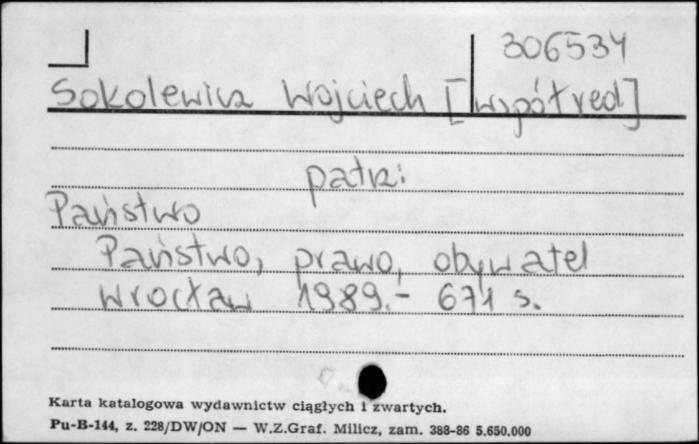 306534
Sokolewicz Wojciech [współred]
patrz:
Państwo
Państwo, prawo, obywatel
Wrocław 1989.- 671 s.
Karta katalogowa wydawnictw ciągłych i zwartych.
Pu-B-144, z. 228/DW/ON — W.Z.Graf. Milicz, zam. 388-86 5.650.000